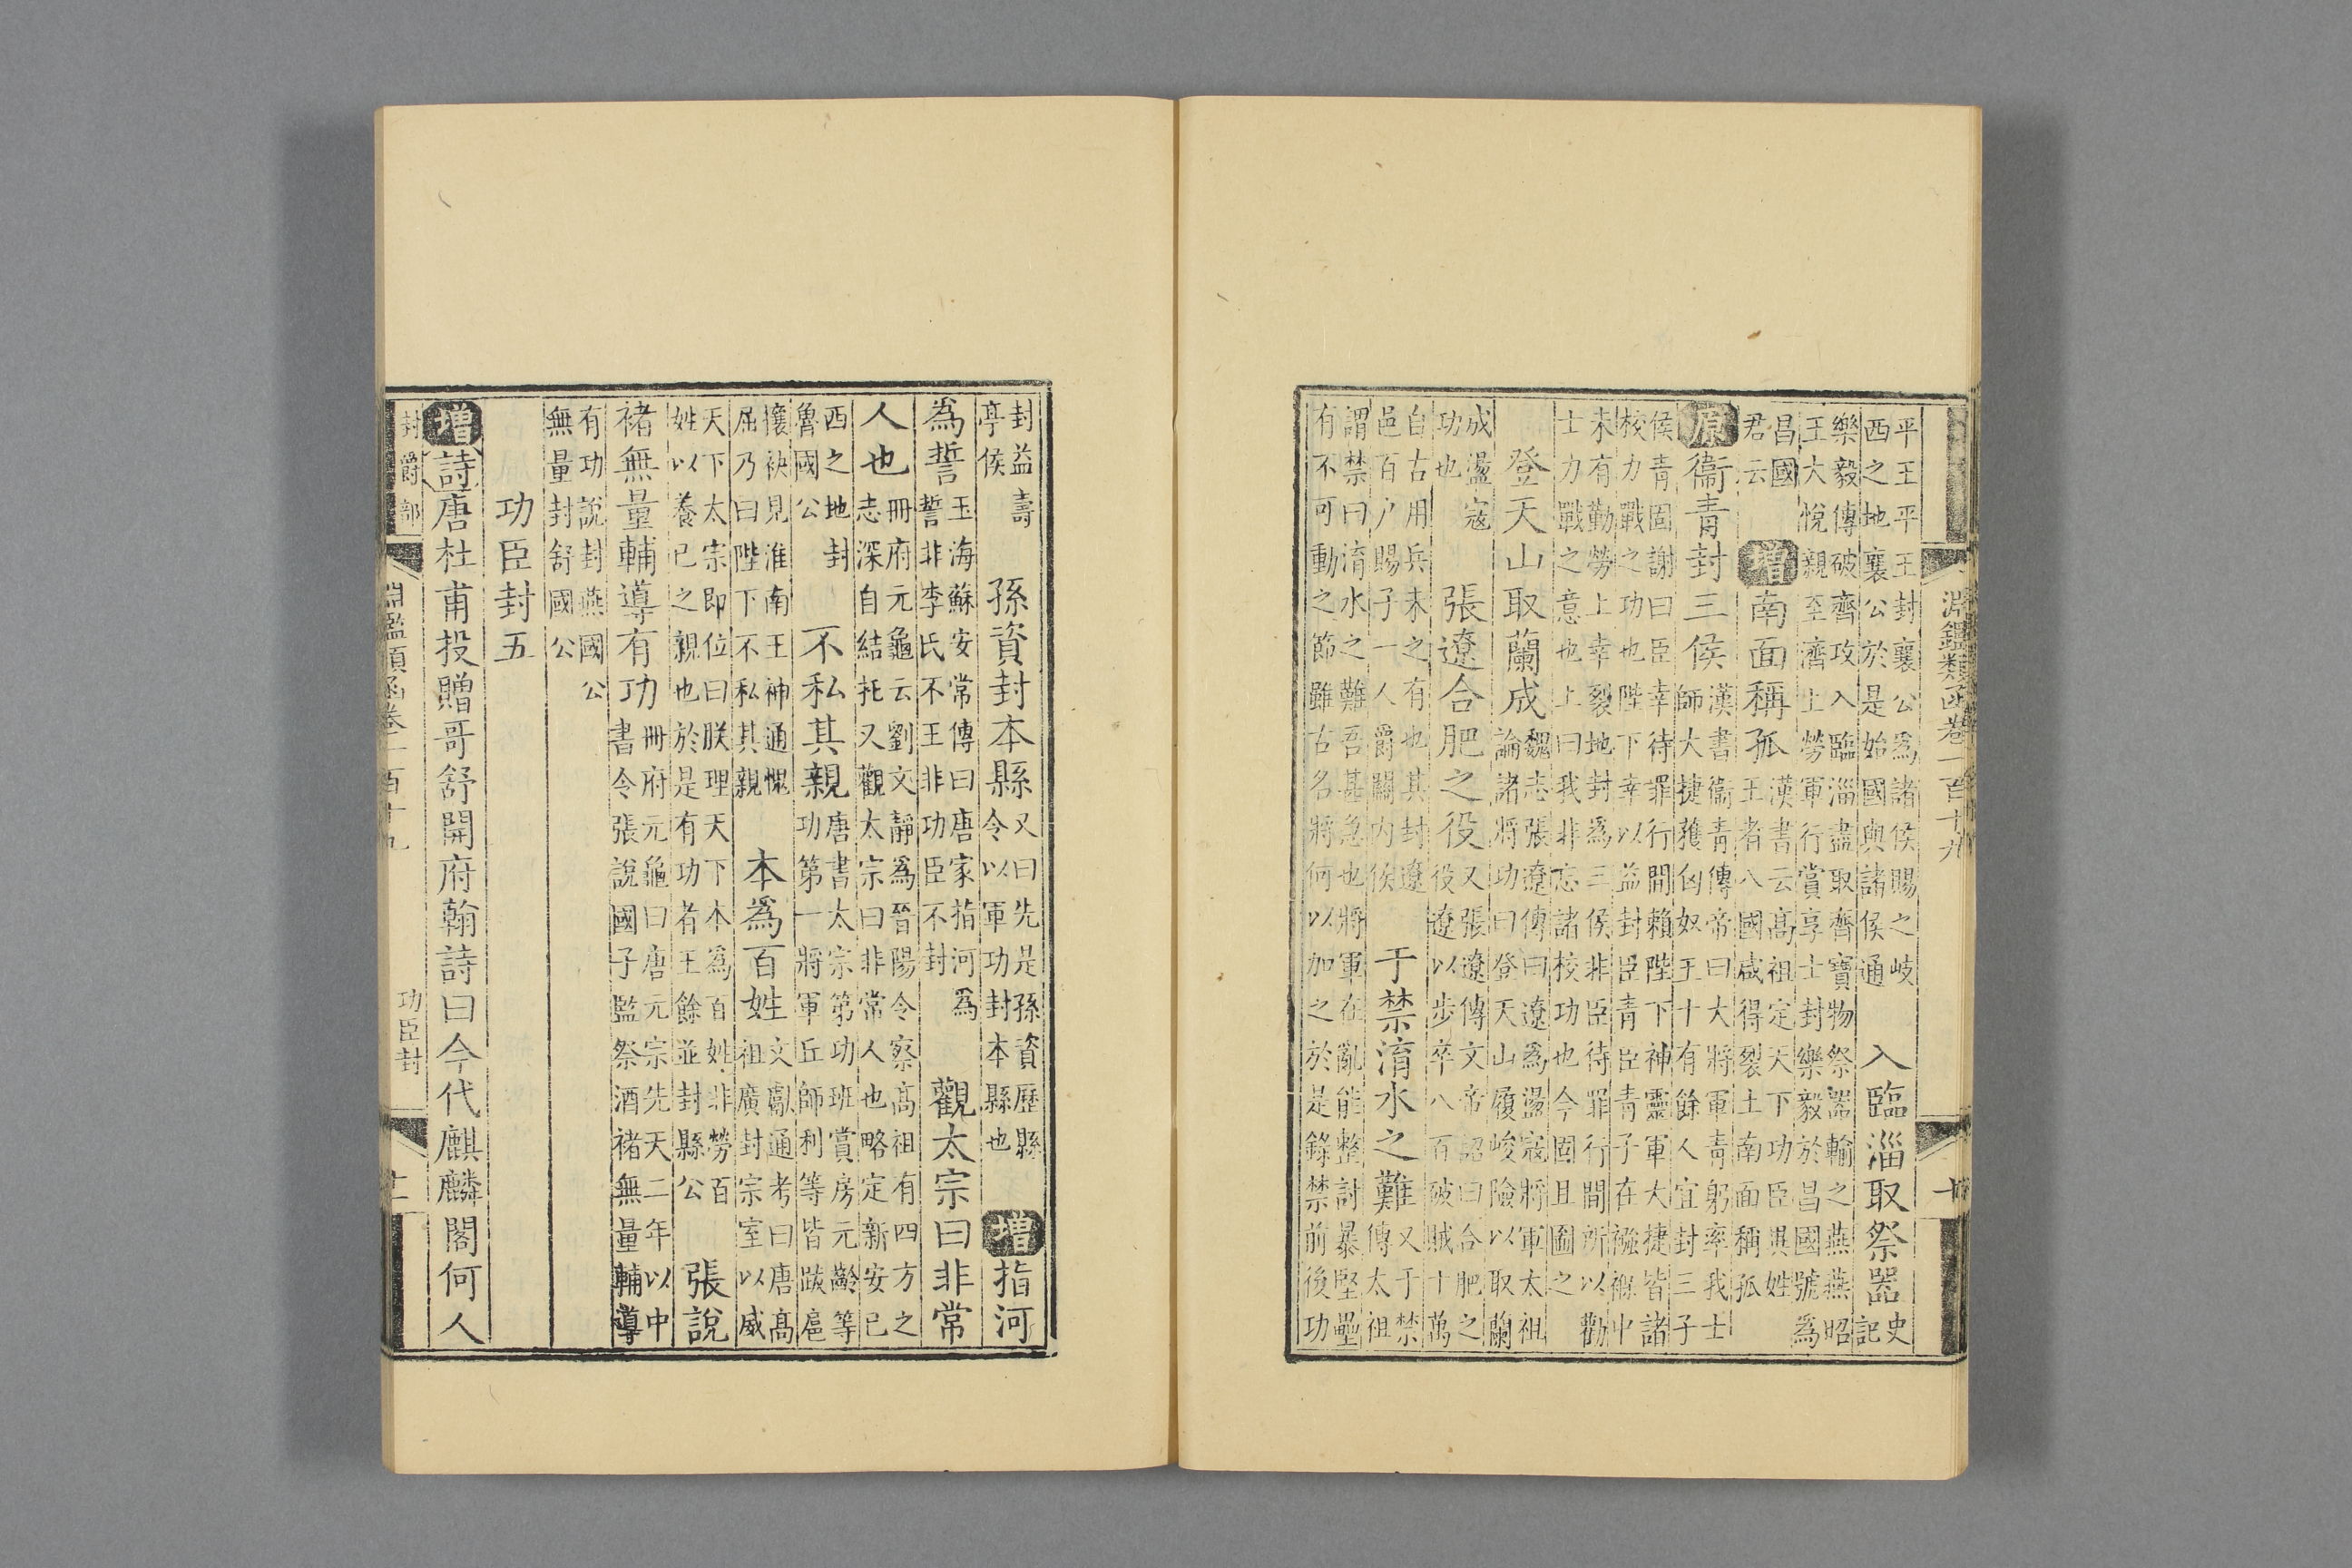 淵鑑類函卷一百十九　十
平王平王封襄公爲諸侯賜之岐
西之地襄公於是始國與諸侯通
入臨淄取祭器
史
記
樂毅傳破齊攻入臨淄盡取齊寶物祭器輸之燕燕昭
王大悅親至濟上勞軍行賞享士封樂毅於昌國號爲
昌國
君云
增南面稱孤
漢書云高祖定天下功臣異姓
王者八國咸得裂土南面稱孤
原衞青封三侯
漢書衞青傳帝曰大將軍青躬率我士
師大捷獲匈奴王十有餘人宜封三子
侯青固謝曰臣幸待罪行間賴陛下神靈軍大捷皆諸
校力戰之功也陛下幸以益封臣青臣青子在襁褓中
未有勤勞上幸裂地封爲三侯非臣待罪行間所以勸
士力戰之意也上曰我非忘諸校功也今固且圖之
登天山取蘭成
魏志張遼傳曰遼爲盪寇將軍太祖
論諸將功曰登天山履峻險以取蘭
成盪寇
功也
張遼合肥之役
又張遼傳文帝詔曰合肥之
役遼以步卒八百破賊十萬
自古用兵未之有也其封遼
邑百户賜子一人爵關內侯
于禁淯水之難
又于禁
傳太祖
謂禁曰淯水之難吾甚急也將軍在亂能整討暴堅壘
有不可動之節雖古名將何以加之於是錄禁前後功
封益壽
亭侯
孫資封本縣
又曰先是孫資歷縣
令以軍功封本縣也
增指河
爲誓
玉海蘇安常傳曰唐家指河爲
誓非李氏不王非功臣不封
觀太宗曰非常
人也
冊府元龜云劉文靜爲晉陽令察高祖有四方之
志深自結托又觀太宗曰非常人也略定新安已
西之地封
魯國公
不私其親
唐書太宗第功班賞房元齡等
功第一將軍丘師利等皆跋扈
攘袂見淮南王神通愧
屈乃曰陛下不私其親
本爲百姓
文獻通考曰唐高
祖廣封宗室以威
天下太宗即位曰朕理天下本爲百姓非勞百
姓以養己之親也於是有功者王餘並封縣公
張說
褚無量輔導有功
冊府元龜曰唐元宗先天二年以中
書令張說國子監祭酒褚無量輔導
有功說封燕國公
無量封舒國公
功臣封五
增詩唐杜甫投贈哥舒開府翰詩曰今代麒麟閣何人
封爵部　淵鑑類函卷一百十九　功臣封　十一